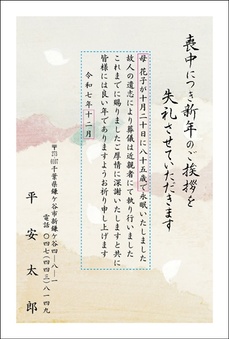 喪中につき新年のご挨拶を
失礼させていただきます
母 花子が十月二十日に八十五歳で永眠いたしました
故人の遺志により葬儀は近親者にて執り行いました
これまでに賜りましたご厚情に深謝いたしますと共に
皆様には良い年でありますようお祈り申し上げます
令和七年十二月
千葉県鎌ケ谷市新鎌ケ谷四-八-一
電話 〇四七(四四三)八一四九
平安太郎